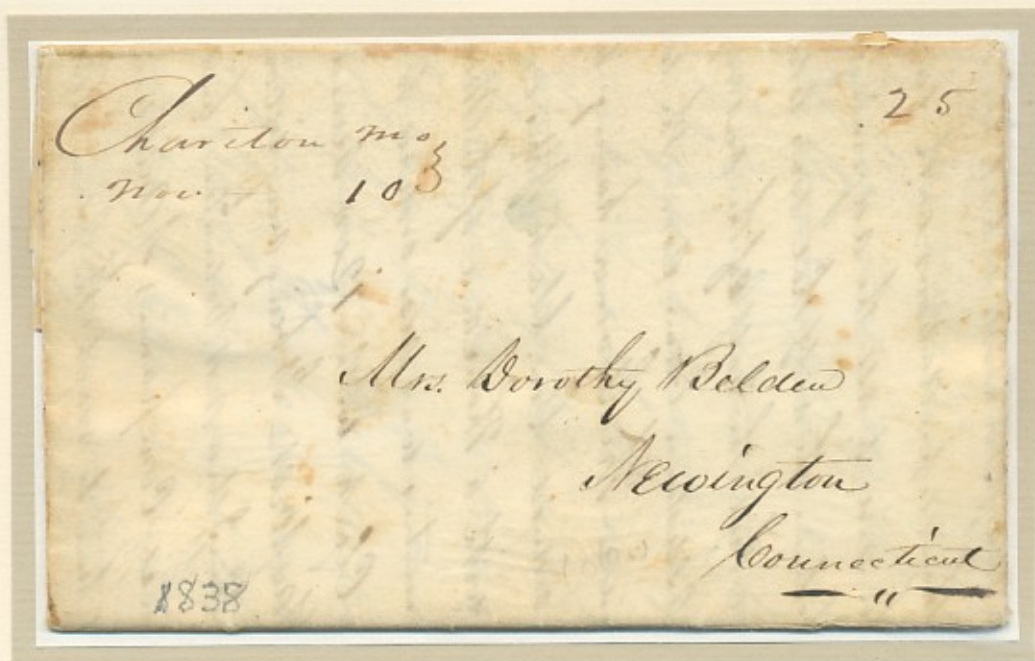 Chariton Mo
Nov - 10
25
Mrs. Dorothy Belden
Newington
Connecticut
1838